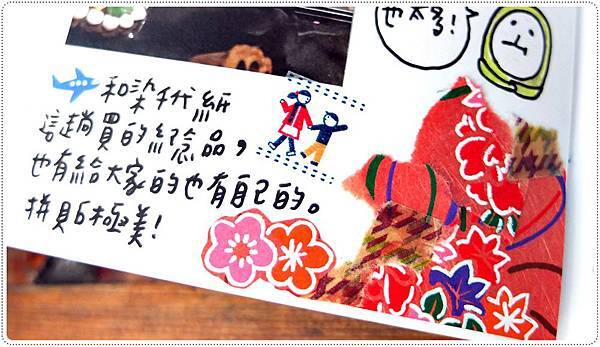 也太多!
和染千代紙
這趟買的紀念品,
也有給大家的也有自己的。
拼貼極美!